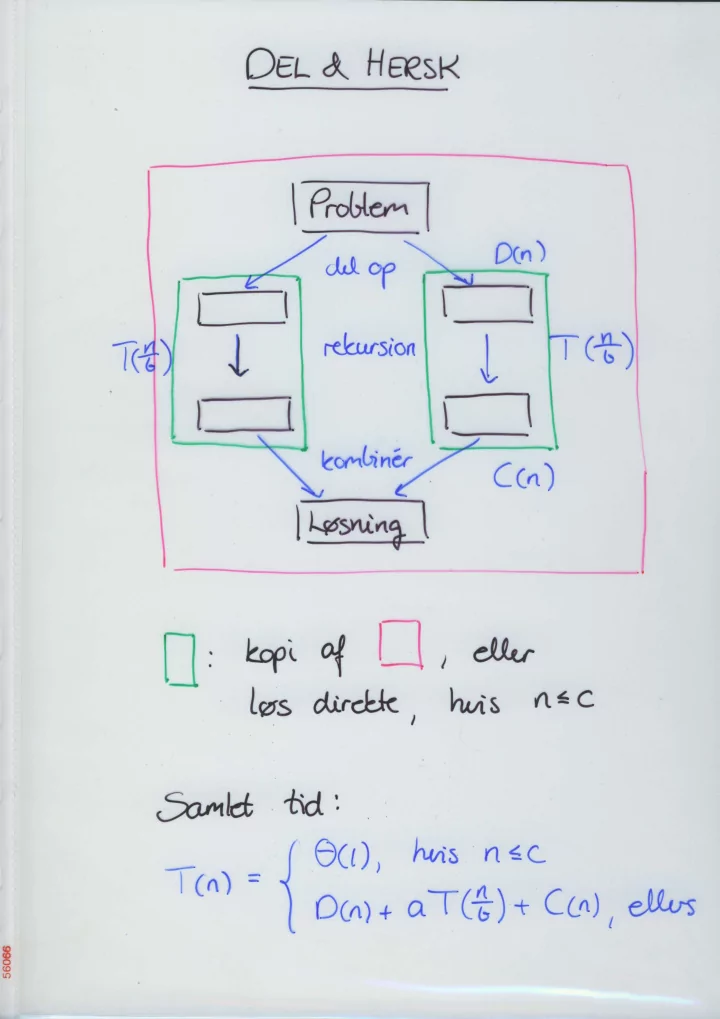 DEL & HERSK
Problem
D(n)
del op
T(n/b)
rekursion
T(n/b)
kombinér
C(n)
Løsning
: kopi af , eller
løs direkte, huis n ≤ c
Samlet tid:
T(n) = { Θ(1), huis n ≤ c
D(n) + a T(n/b) + C(n), ellers
56066